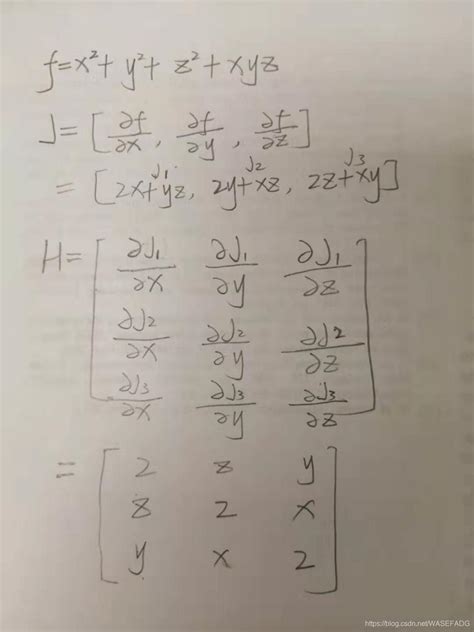 f=x²+y²+z²+xyz
J=[∂f/∂x, ∂f/∂y, ∂f/∂z]
J1 J2 J3
=[2x+yz, 2y+xz, 2z+xy]
H=[∂J1/∂x ∂J1/∂y ∂J1/∂z
∂J2/∂x ∂J2/∂y ∂J2/∂z
∂J3/∂x ∂J3/∂y ∂J3/∂z]
=[2 z y
z 2 x
y x 2]
https://blog.csdn.net/WASEFADG